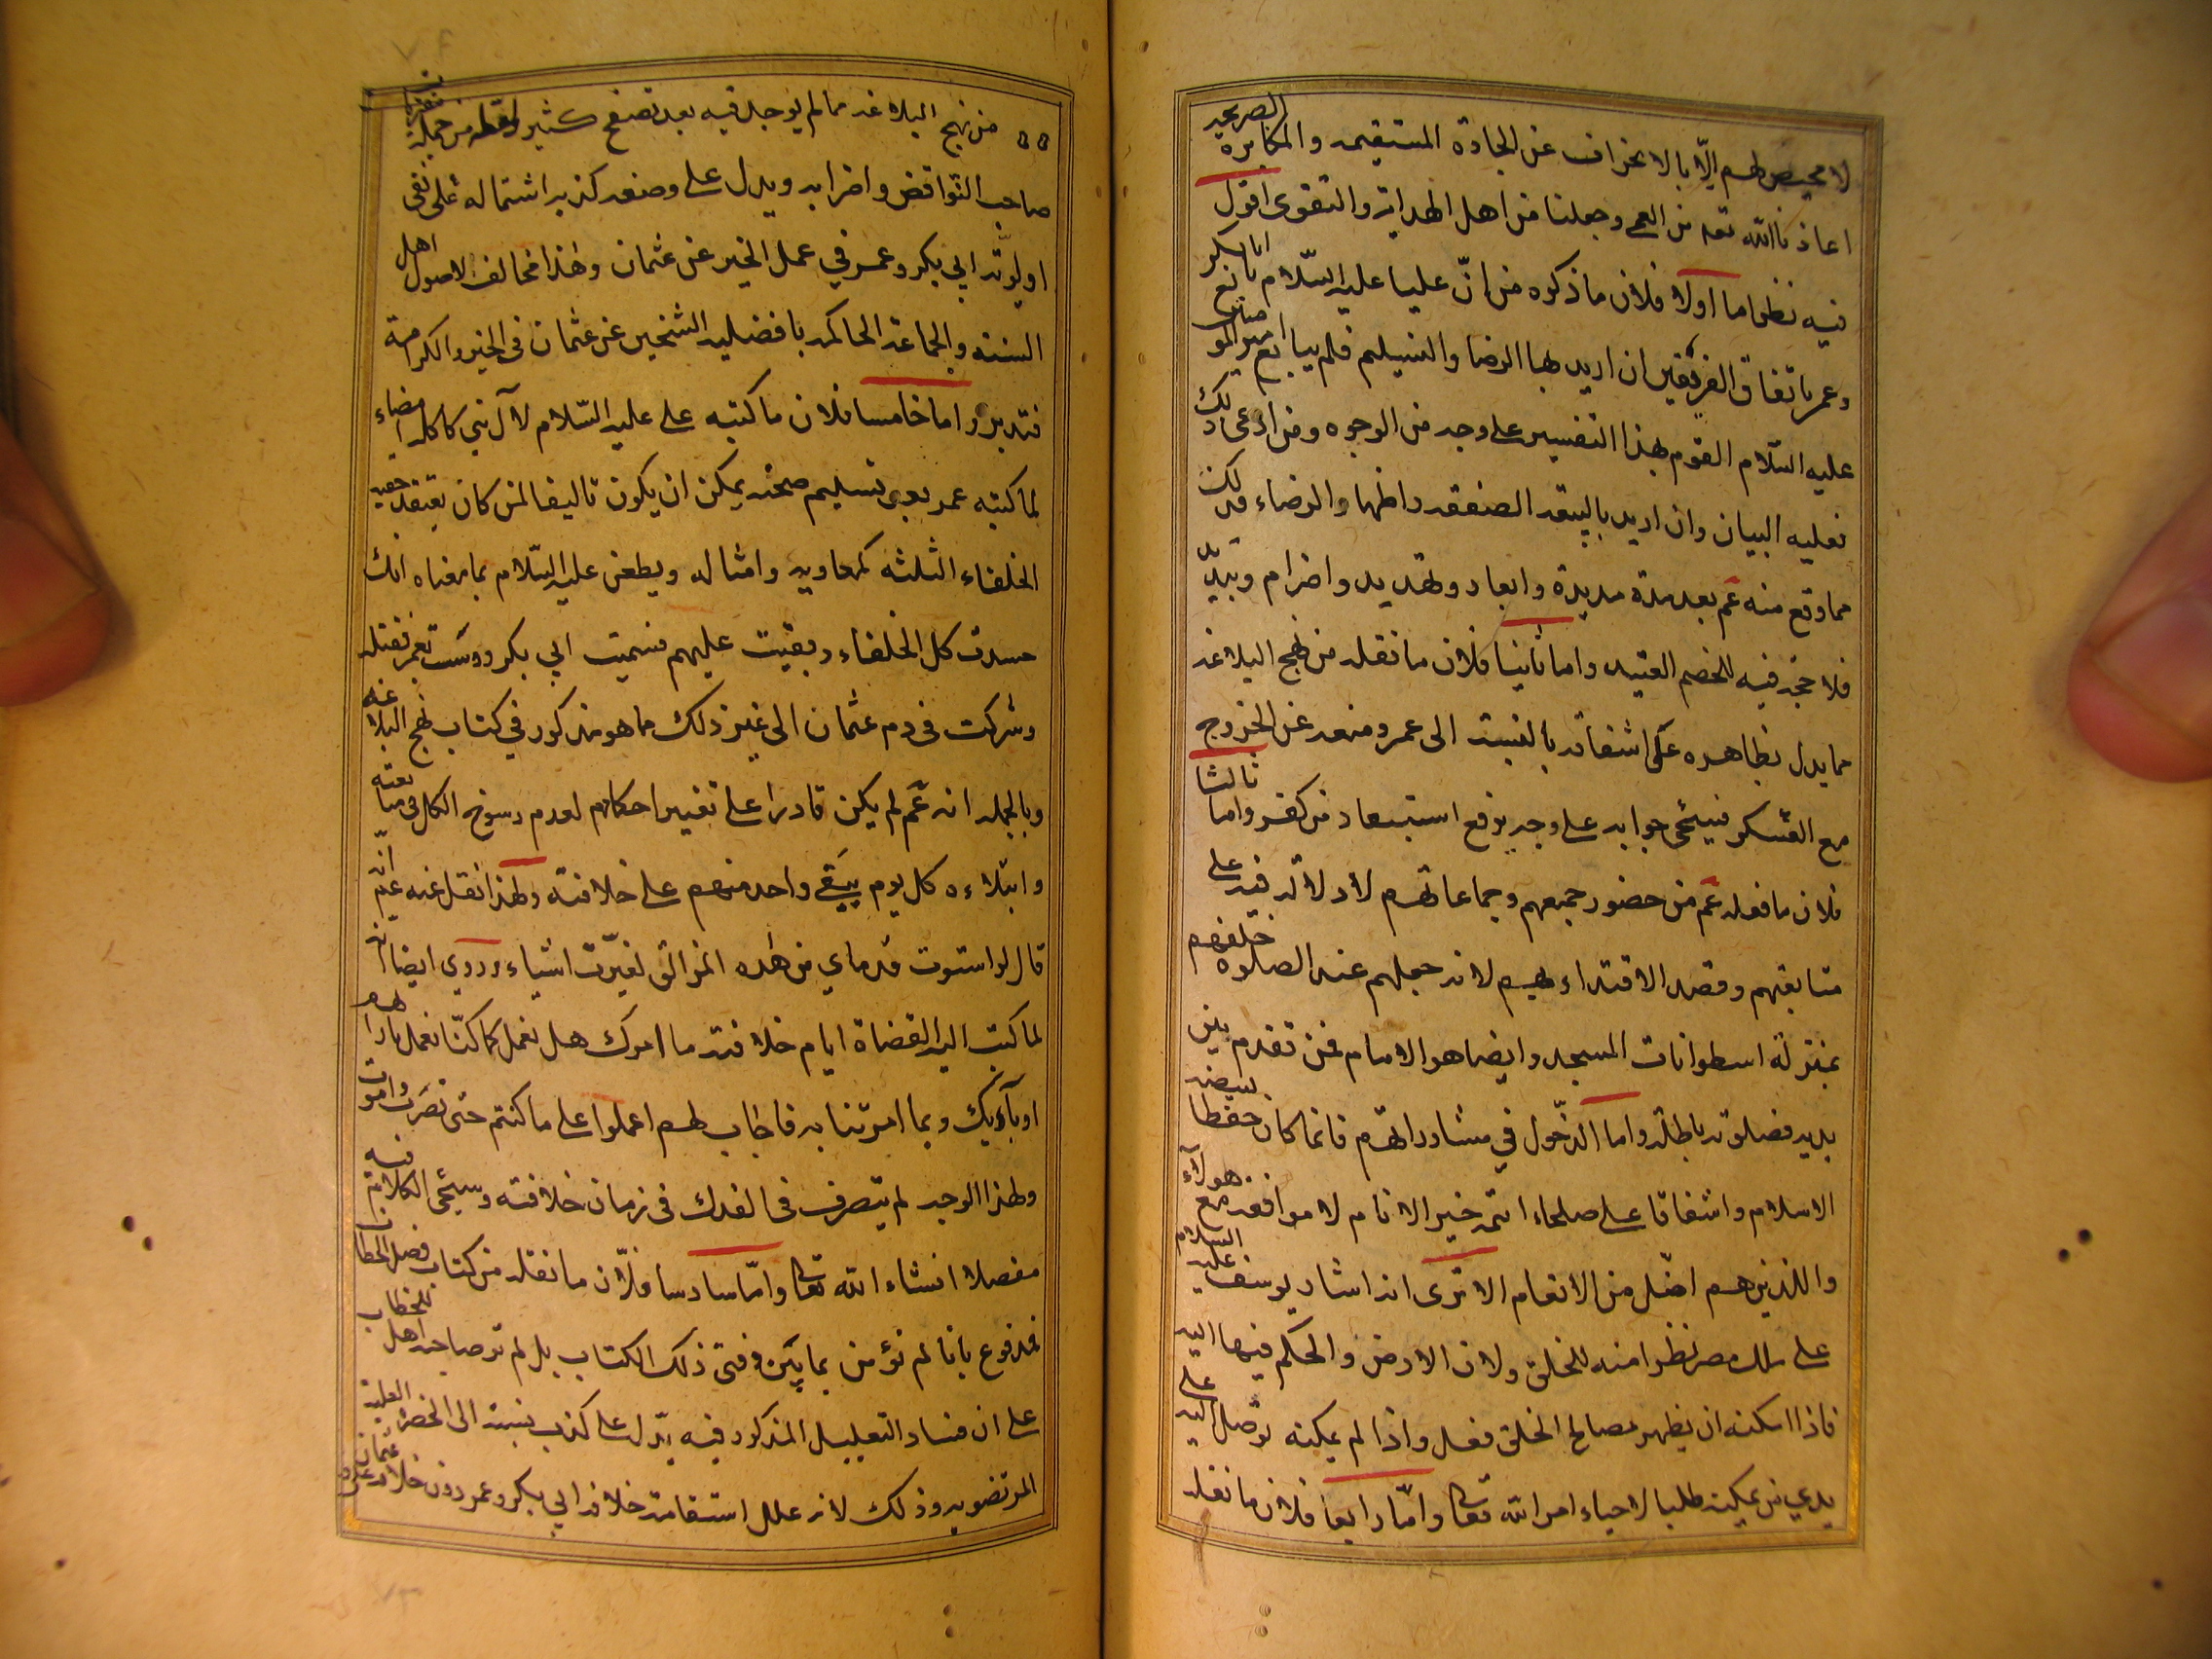 لا محيص لهم الّا بالانحراف عن الجادة المستقيمه والمكابرة الصريحه
اعاذنا الله تعه من العمى وجعلنا من اهل الهداية والتقوى اقول
فيه نظر اما اولا فلان ما ذكره من انّ عليا عليه السّلام بايع ابا بكر
وعمر باتفاق الفريقين ان اريد بها الرضا والتسليم فلم يبايع امير المومنين
عليه السّلام القوم بهذا التفسير على وجه من الوجوه ومن ادعى ذلك
فعليه البيان وان اريد بالبيعه الصفقه واظهار الرضاء فذلك
مما وقع منه عم بعد مدة مديدة وابعاد وتهديد
فلا حجة فيه للخصم العنيد واما ثانيا فلان ما نقله من نهج البلاغه
مما يدل بظاهره على اشفاقه بالنسبة الى عمر ومنعه عن الخروج
مع العسكر فسيجئ جوابه على وجه يرفع استبعاد من كفر واما ثالثا
فلان ما فعله عم من حضور جمعهم وجماعاتهم لا دلالة فيه على
متابعتهم وقصد الاقتداء بهم لانه جعلهم عند الصلوة خلفهم
بمنزلة اسطوانات المسجد وايضا هو الامام فمن تقدم بين
يديه فصلوته باطلة واما الدّخول في مشاوراتهم فانما كان حفظا لبيضه
الاسلام واشفاقا على صلحاء امّة خير الانام لا موافقه مع هولآء
واللذين هم اضلّ من الانعام الا ترى انه اشار يوسف عليه السلام
على ملك مصر نظرا منه للخلق ولان الارض والحكم فيها اليه
فاذا امكنه ان يظهر مصالح الخلق فعل واذا لم يمكنه توصّل اليه على
يدي من يمكنه طلبا لاحياء امر الله تعالى وامّا رابعا فلان ما نقله
من نهج البلاغه مما لم يوجد فيه بعد تصفح كثير ولعله من جملة
صاحب النواقض واضرابه ويدل على وضعه كذبه اشتماله على نفى
اولويّة ابي بكر وعمر في عمل الخير عن عثمان وهذا مخالف لاصول اهل
السنه والجماعة الحاكمه بافضليه الشيخين عن عثمان في الخير والكرامة
فتدبر واما خامسا فلان ما كتبه على عليه السّلام لآل بني كاكله امضاء
لما كتبه عمر بعد تسليم صحته يمكن ان يكون تاليفا لمن كان يعتقد حقيه
الخلفاء الثلثه كمعاويه وامثاله ويطعن عليه السّلام بما معناه انك
حسدت كل الخلفاء وبغيت عليهم فسميت ابي بكر ودست لعمر لقتله
وشركت في دم عثمان الى غير ذلك مما هو مذكور في كتاب نهج البلاغه
وبالجمله انه عم لم يكن قادرا على تغيير احكام لعدم رسوخ الكل في متابعته
وابتلاءه كل يوم ببغى واحد منهم على خلافته ولهذا نقل عنه عم انّه
قال لو استوت قدماي من هذه المزالق لغيّرت اشياء وروي ايضا انّه
لما كتب اليه القضاة ايام خلافته ما امرك هل نعمل كما كنّا نعمل بارائهم
او برأيك وبما امرتنا به فاجاب لهم اعملوا على ما كنتم حتى نصرت واموت
ولهذا الوجه لم يتصرف في الفدك في زمان خلافته وسيجئ الكلام فيه
مفصلا انشاء الله تعالى وامّا سادسا فلانّ ما نقله من كتاب فصل الخطاب
فمدفوع بانا لم نؤمن بما بين دفتى ذلك الكتاب بل لم نر صاحبه اهل للخطاب
على ان فساد التعليل المذكور فيه يدل على كذب نسبته الى الحضرة العليه
المرتضويه وذلك لانه علل استقامة خلافة ابي بكر وعمر دون خلافه عثمان